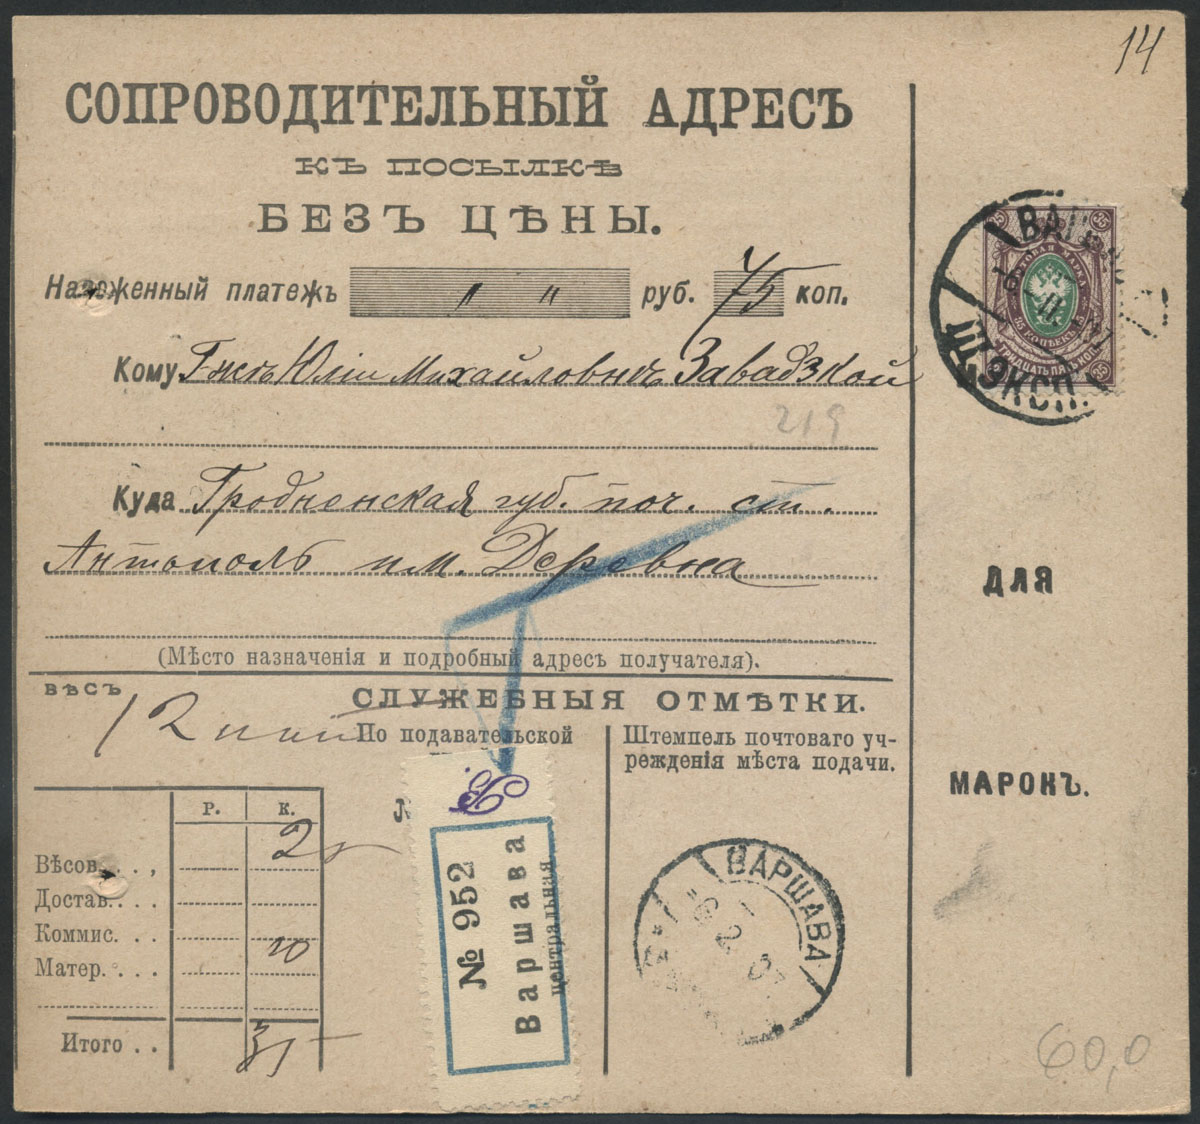 14
СОПРОВОДИТЕЛЬНЫЙ АДРЕСЪ
КЪ ПОСЫЛКѢ
БЕЗЪ ЦѢНЫ.
Наложенный платежъ " " руб. 75 коп.
Кому Г-жѣ Юліи Михайловнѣ Завадзкой
219
Куда Гродненская губ. поч. ст.
Антополь им. Деревна
(Мѣсто назначенія и подробный адресъ получателя).
ВѢСЪ
СЛУЖЕБНЫЯ ОТМѢТКИ.
12
По подавательской
Штемпель почтоваго уч-
режденія мѣста подачи.
Р. К.
Вѣсов. . . , 25
Достав. . . .
Коммис. . . 10
Матер. . . .
Итого . . 35
№ 952
Варшава
центральная
ВАРШАВА
2 07
35 35
ПОЧТОВАЯ МАРКА
35 КОПѢЕКЪ 35
ТРИДЦАТЬ ПЯТЬ КОП.
35 35
ЭКСП.
ДЛЯ
МАРОКЪ.
60,0